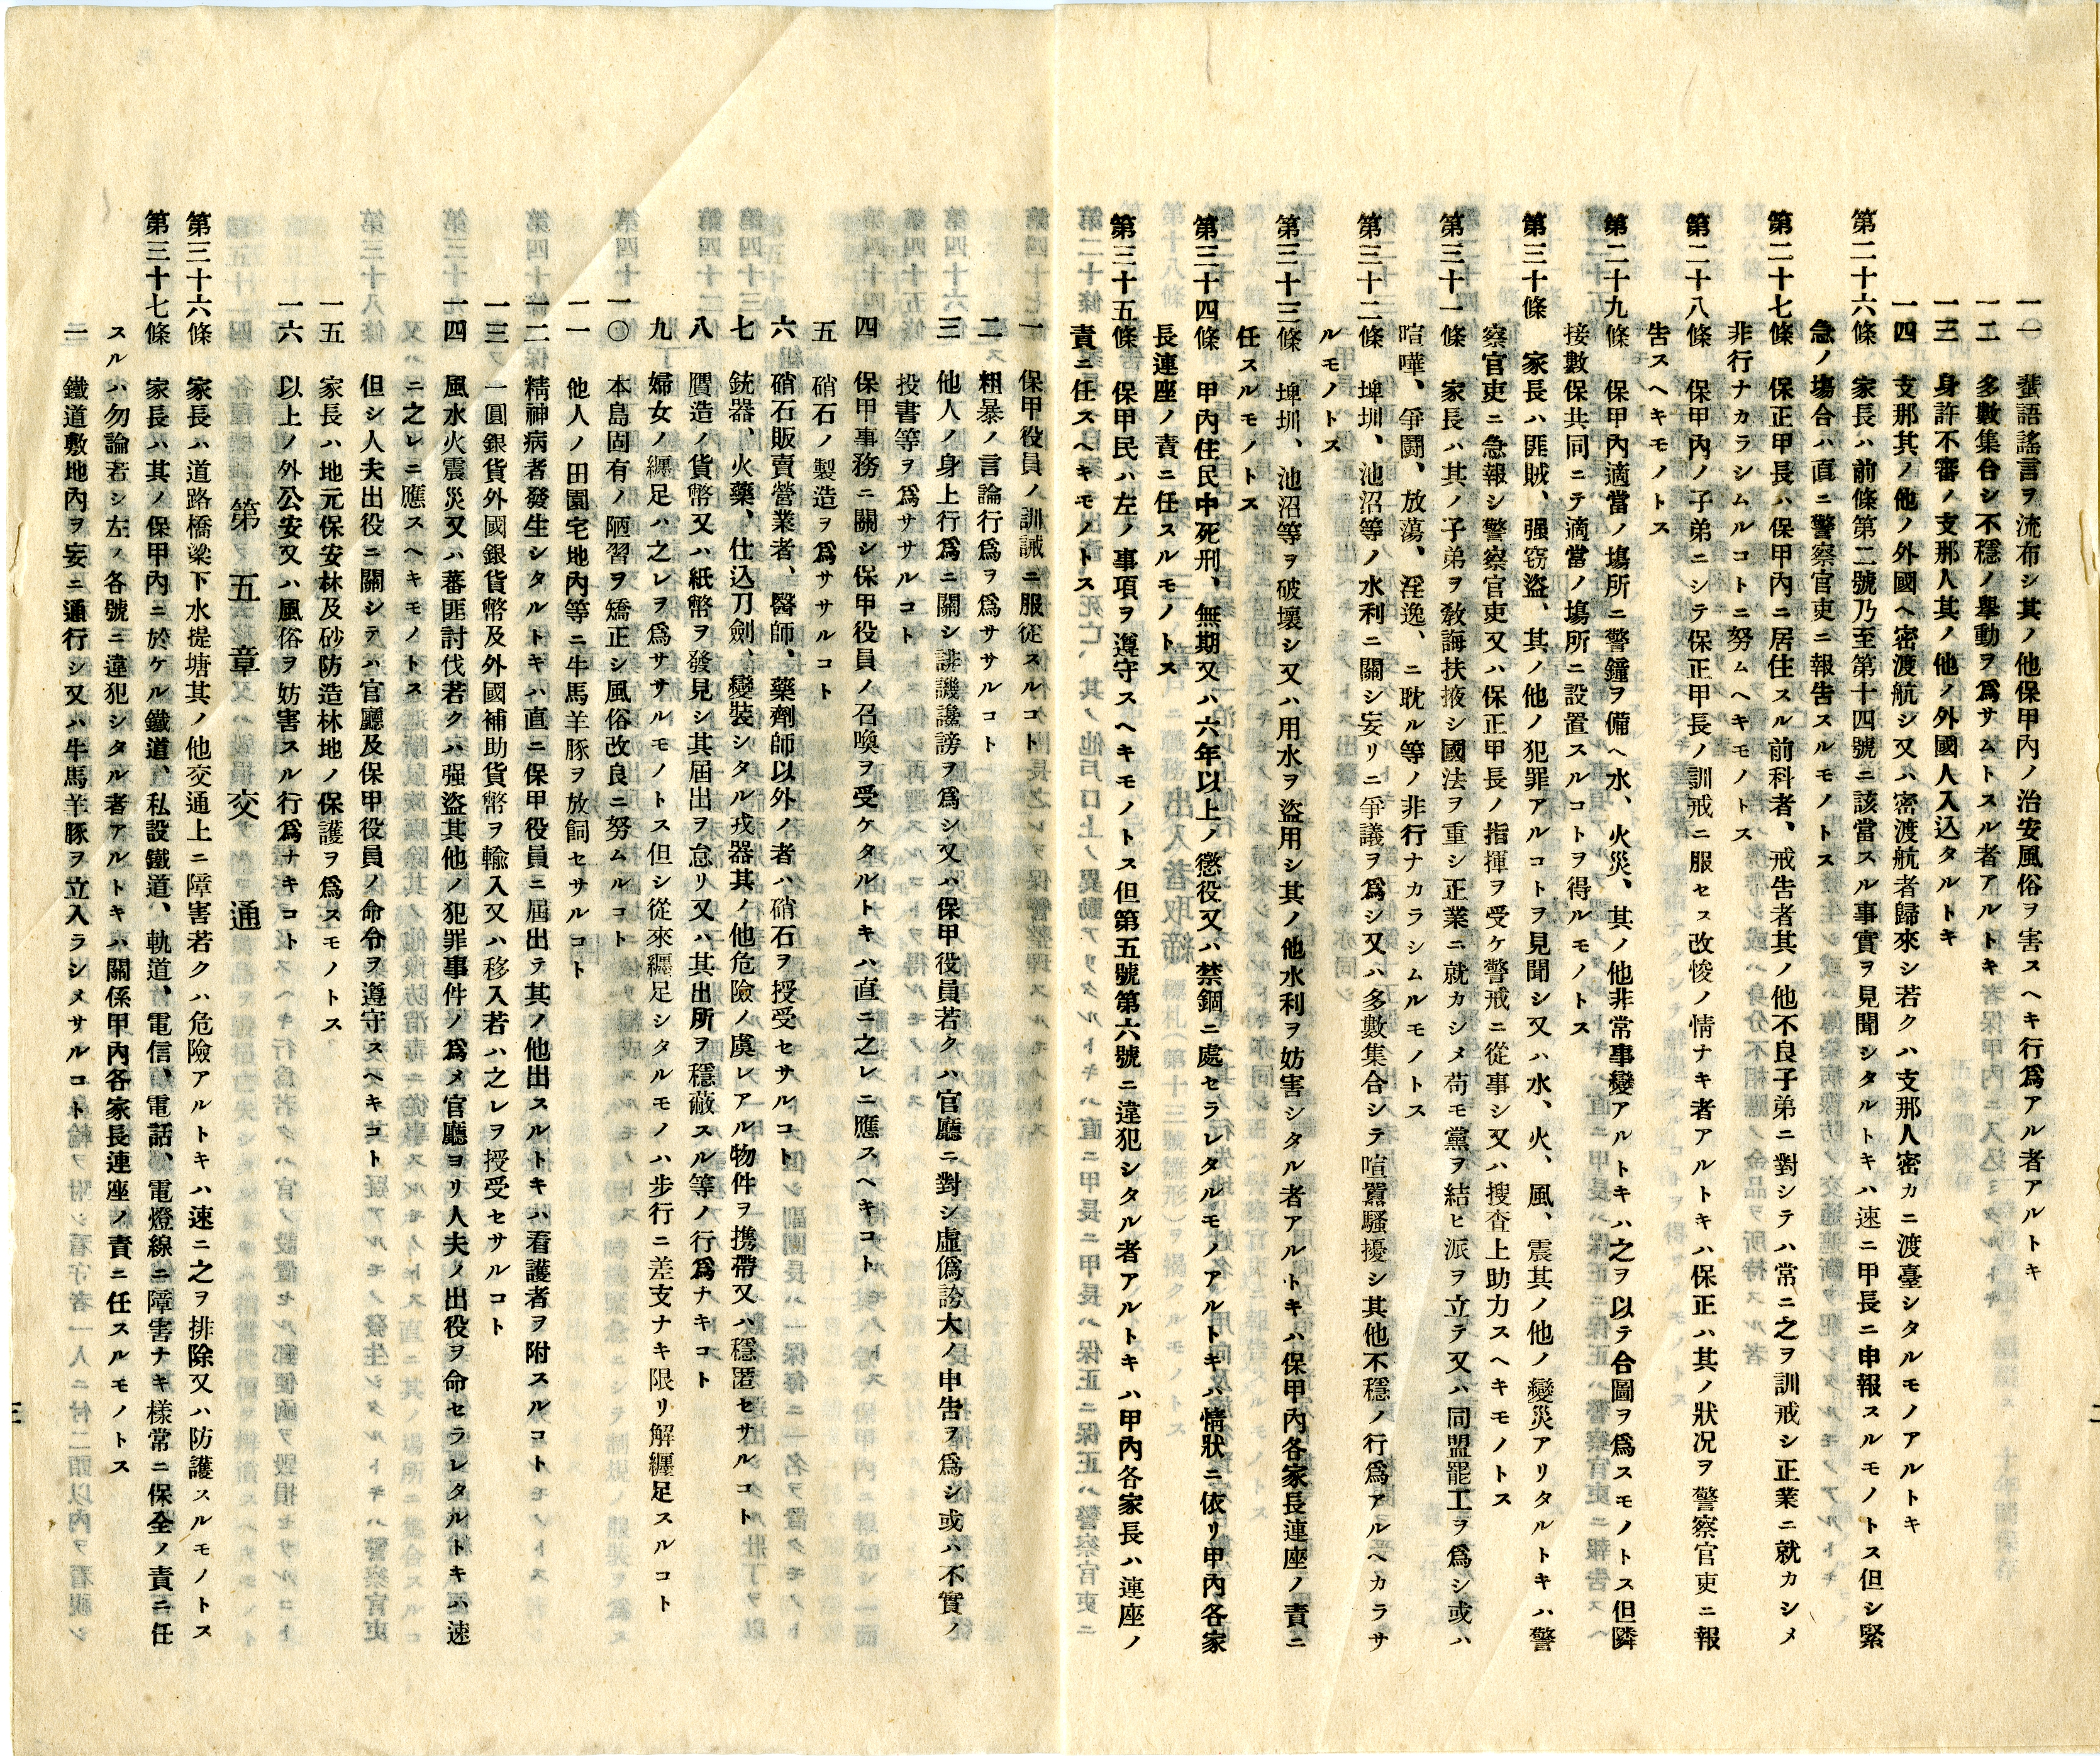 一〇　蜚語謠言ヲ流布シ其ノ他保甲內ノ治安風俗ヲ害スヘキ行爲アル者アルトキ
一二　多數集合シ不穩ノ擧動ヲ爲サムトスル者アルトキ
一三　身許不審ノ支那人其ノ他ノ外國人入込タルトキ
一四　支那其ノ他ノ外國ヘ密渡航シ又ハ密渡航者歸來シ若クハ支那人密カニ渡臺シタルモノアルトキ
第二十六條　家長ハ前條第二號乃至第十四號ニ該當スル事實ヲ見聞シタルトキハ速ニ甲長ニ申報スルモノトス但シ緊
急ノ塲合ハ直ニ警察官吏ニ報告スルモノトス
第二十七條　保正甲長ハ保甲內ニ居住スル前科者、戒告者其ノ他不良子弟ニ對シテハ常ニ之ヲ訓戒シ正業ニ就カシメ
非行ナカラシムルコトニ努ムヘキモノトス
第二十八條　保甲內ノ子弟ニシテ保正甲長ノ訓戒ニ服セス改悛ノ情ナキ者アルトキハ保正ハ其ノ狀况ヲ警察官吏ニ報
告スヘキモノトス
第二十九條　保甲內適當ノ塲所ニ警鐘ヲ備ヘ水、火災、其ノ他非常事變アルトキハ之ヲ以テ合圖ヲ爲スモノトス但隣
接數保共同ニテ適當ノ塲所ニ設置スルコトヲ得ルモノトス
第三十條　家長ハ匪賊、强窃盜、其ノ他ノ犯罪アルコトヲ見聞シ又ハ水、火、風、震其ノ他ノ變災アリタルトキハ警
察官吏ニ急報シ警察官吏又ハ保正甲長ノ指揮ヲ受ケ警戒ニ從事シ又ハ搜査上助力スヘキモノトス
第三十一條　家長ハ其ノ子弟ヲ敎誨扶掖シ國法ヲ重シ正業ニ就カシメ苟モ黨ヲ結ヒ派ヲ立テ又ハ同盟罷工ヲ爲シ或ハ
喧嘩、爭鬪、放蕩、淫逸、ニ耽ル等ノ非行ナカラシムルモノトス
第三十二條　埤圳、池沼等ノ水利ニ關シ妄リニ爭議ヲ爲シ又ハ多數集合シテ喧囂騷擾シ其他不穩ノ行爲アルヘカラサ
ルモノトス
第三十三條　埤圳、池沼等ヲ破壞シ又ハ用水ヲ盜用シ其ノ他水利ヲ妨害シタル者アルトキハ保甲內各家長連座ノ責ニ
任スルモノトス
第三十四條　甲內住民中死刑、無期又ハ六年以上ノ懲役又ハ禁錮ニ處セラレタルモノアルトキハ情狀ニ依リ甲內各家
長連座ノ責ニ任スルモノトス
第三十五條　保甲民ハ左ノ事項ヲ遵守スヘキモノトス但第五號第六號ニ違犯シタル者アルトキハ甲內各家長ハ連座ノ
責ニ任スヘキモノトス
二
一　保甲役員ノ訓誡ニ服從スルコト
二　粗暴ノ言論行爲ヲ爲ササルコト
三　他人ノ身上行爲ニ關シ誹譏讒謗ヲ爲シ又ハ保甲役員若クハ官廳ニ對シ虛僞誇大ノ申告ヲ爲シ或ハ不實ノ
投書等ヲ爲ササルコト
四　保甲事務ニ關シ保甲役員ノ召喚ヲ受ケタルトキハ直ニ之レニ應スヘキコト
五　硝石ノ製造ヲ爲ササルコト
六　硝石販賣營業者、醫師、藥劑師以外ノ者ハ硝石ヲ授受セサルコト
七　銃器、火藥、仕込刀劍、變裝シタル戎器其ノ他危險ノ虞レアル物件ヲ携帶又ハ穩匿セサルコト
八　贋造ノ貨幣又ハ紙幣ヲ發見シ其屆出ヲ怠リ又ハ其出所ヲ穩蔽スル等ノ行爲ナキコト
九　婦女ノ纒足ハ之レヲ爲ササルモノトス但シ從來纒足シタルモノハ步行ニ差支ナキ限リ解纒足スルコト
一〇　本島固有ノ陋習ヲ矯正シ風俗改良ニ努ムルコト
一一　他人ノ田園宅地內等ニ牛馬羊豚ヲ放飼セサルコト
一二　精神病者發生シタルトキハ直ニ保甲役員ニ屆出テ其ノ他出スルトキハ看護者ヲ附スルコト
一三　一圓銀貨外國銀貨幣及外國補助貨幣ヲ輸入又ハ移入若ハ之レヲ授受セサルコト
一四　風水火震災又ハ蕃匪討伐若クハ强盜其他ノ犯罪事件ノ爲メ官廳ヨリ人夫ノ出役ヲ命セラレタルトキハ速
ニ之レニ應スヘキモノトス
但シ人夫出役ニ關シテハ官廳及保甲役員ノ命令ヲ遵守スヘキコト
一五　家長ハ地元保安林及砂防造林地ノ保護ヲ爲スモノトス
一六　以上ノ外公安又ハ風俗ヲ妨害スル行爲ナキコト
第五章　交通
第三十六條　家長ハ道路橋梁下水堤塘其ノ他交通上ニ障害若クハ危險アルトキハ速ニ之ヲ排除又ハ防護スルモノトス
第三十七條　家長ハ其ノ保甲內ニ於ケル鐵道、私設鐵道、軌道、電信、電話、電燈線ニ障害ナキ樣常ニ保全ノ責ニ任
スルハ勿論若シ左ノ各號ニ違犯シタル者アルトキハ關係甲內各家長連座ノ責ニ任スルモノトス
一　鐵道敷地內ヲ妄ニ通行シ又ハ牛馬羊豚ヲ立入ラシメサルコト
三